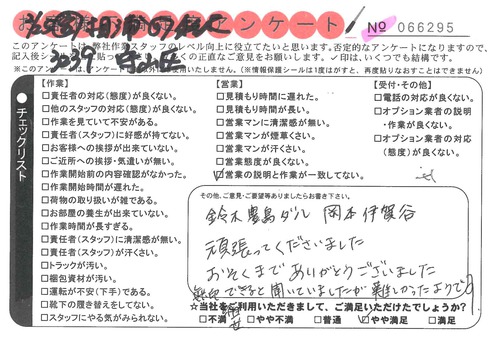 アンケート
№ 066295
このアンケートは弊社作業スタッフのレベル向上に役立てたいと思います。否定的なアンケートになりますので、
3039 守山区
※このアンケートは
外には使用いたしません。(※情報保護シールは1度はがすと、再度貼りなおすことはできません)
チェックリスト
【作業】
□責任者の対応(態度)が良くない。
□他のスタッフの対応(態度)が良くない。
□作業を見ていて不安がある。
□責任者(スタッフ)に好感が持てない。
□お客様への挨拶が出来ていない。
□ご近所への挨拶・気遣いが無い。
□作業開始前の内容確認がなかった。
□作業開始時間が遅れた。
□荷物の取り扱いが雑である。
□お部屋の養生が出来ていない。
□作業時間が長すぎる。
□責任者(スタッフ)に清潔感が無い。
□責任者(スタッフ)が汗くさい。
□トラックが汚い。
□梱包資材が汚い。
□運転が不安(下手)である。
□靴下の履き替えをしてない。
□スタッフにやる気がみられない。
【営業】
□見積もり時間に遅れた。
□見積もり時間が長い。
□営業マンに清潔感が無い。
□営業マンが煙草くさい。
□営業マンが汗くさい。
□営業態度が良くない。
☑営業の説明と作業が一致してない。
【受付・その他】
□電話の対応が良くない。
□オプション業者の説明
・作業が良くない。
□オプション業者の対応
(態度)が良くない。
その他、ご意見・ご要望等ありましたらお書き下さい。
鈴木 豊島 ダル 岡本 伊賀谷
頑張ってくださいました
おそくまで ありがとうございました
できると聞いていましたが 難しかったようで
☆当社をご利用いただきまして、ご満足いただけたでしょうか?
□不満 □やや不満 □普通 ☑やや満足 □満足